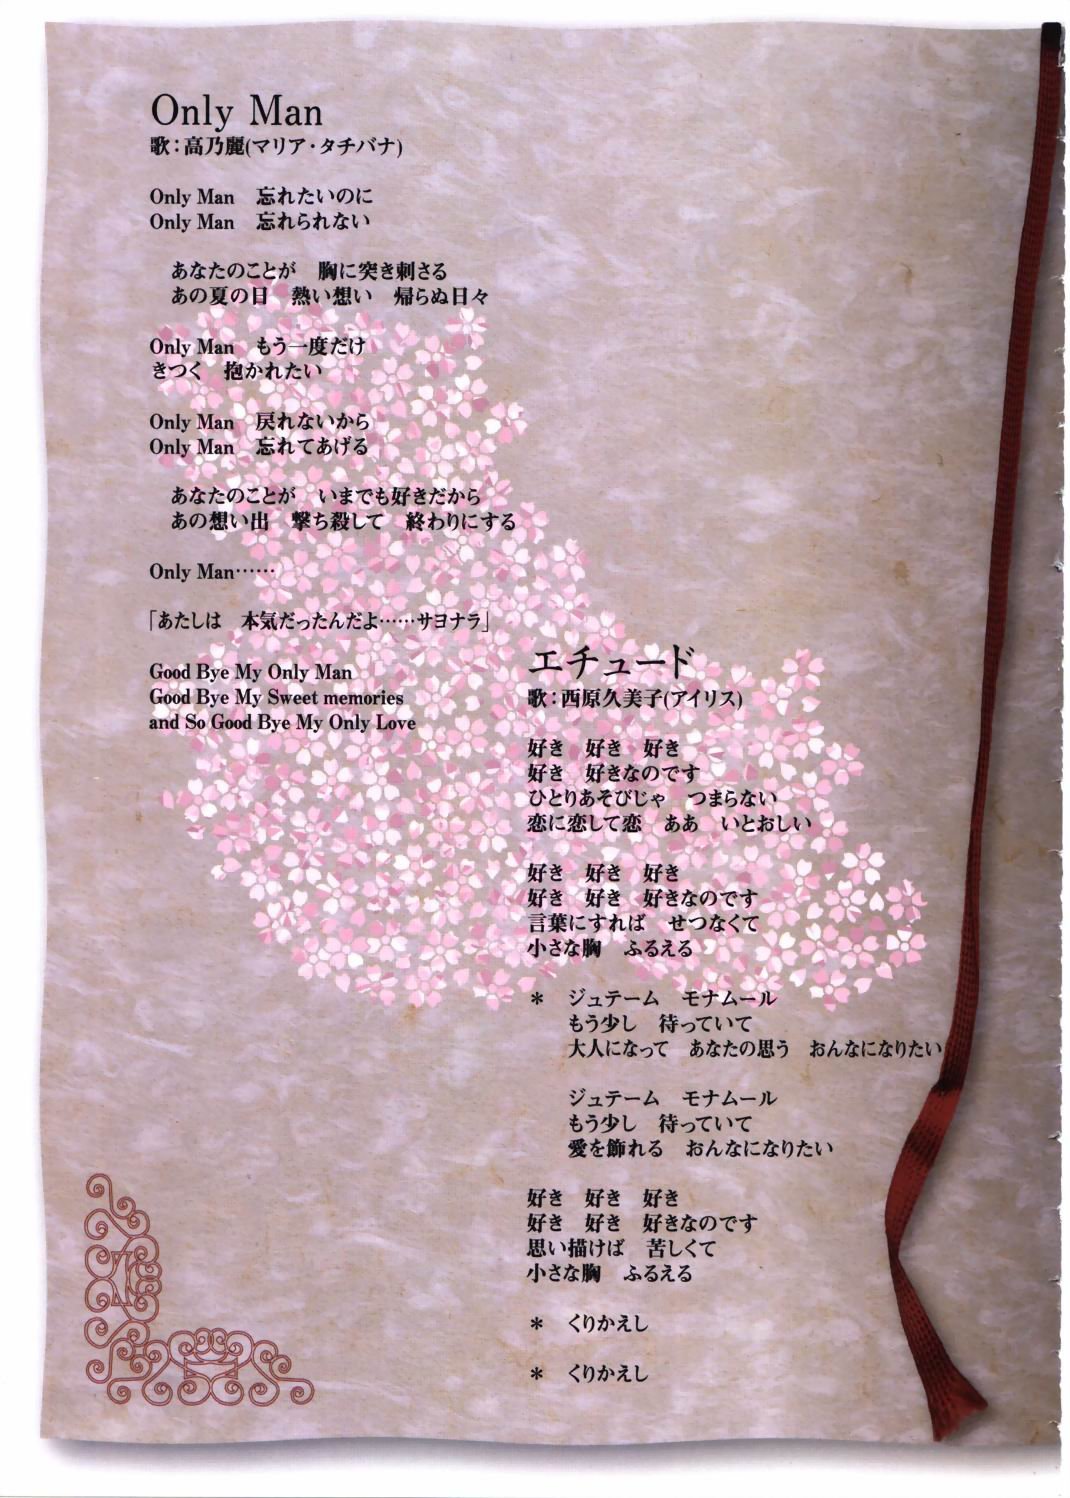 Only Man
歌：高乃麗(マリア・タチバナ)
Only Man　忘れたいのに
Only Man　忘れられない
あなたのことが　胸に突き刺さる
あの夏の日　熱い想い　帰らぬ日々
Only Man　もう一度だけ
きつく　抱かれたい
Only Man　戻れないから
Only Man　忘れてあげる
あなたのことが　いまでも好きだから
あの想い出　撃ち殺して　終わりにする
Only Man……
「あたしは　本気だったんだよ……サヨナラ」
Good Bye My Only Man
Good Bye My Sweet memories
and So Good Bye My Only Love
エチュード
歌：西原久美子(アイリス)
好き　好き　好き
好き　好きなのです
ひとりあそびじゃ　つまらない
恋に恋して恋　ああ　いとおしい
好き　好き　好き
好き　好き　好きなのです
言葉にすれば　せつなくて
小さな胸　ふるえる
＊　ジュテーム　モナムール
もう少し　待っていて
大人になって　あなたの思う　おんなになりたい
ジュテーム　モナムール
もう少し　待っていて
愛を飾れる　おんなになりたい
好き　好き　好き
好き　好き　好きなのです
思い描けば　苦しくて
小さな胸　ふるえる
＊　くりかえし
＊　くりかえし